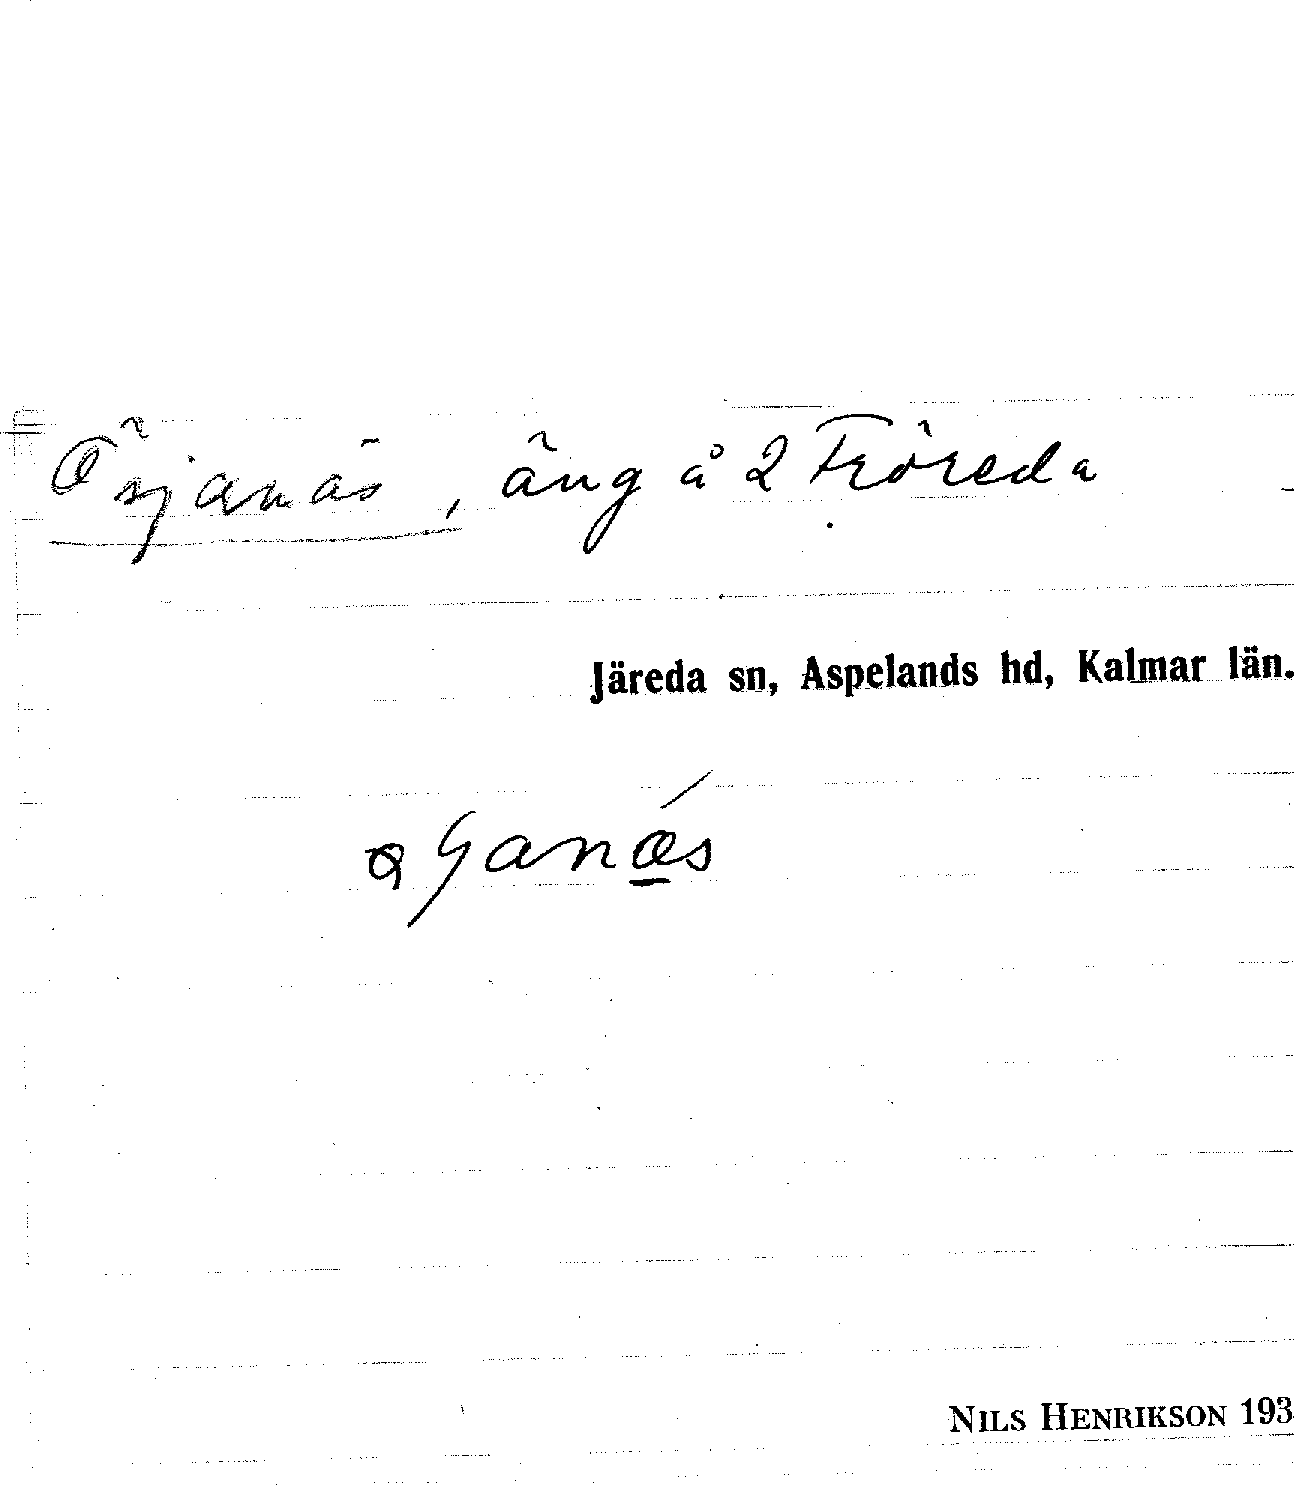 Örjanäs, äng å 2 Fröreda
Järeda sn, Aspelands hd, Kalmar län.
NILS HENRIKSON 193